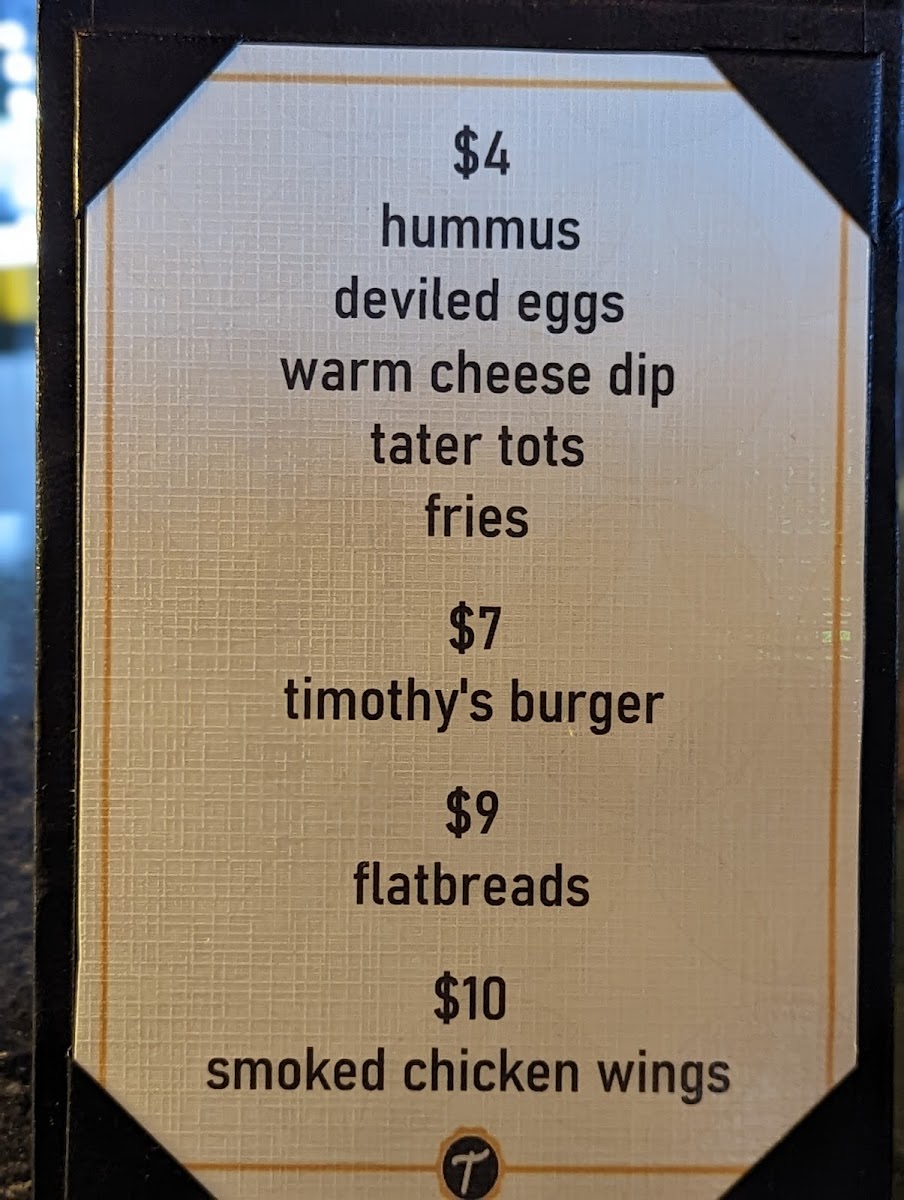 $4
hummus
deviled eggs
warm cheese dip
tater tots
fries
$7
timothy's burger
$9
flatbreads
$10
smoked chicken wings
T